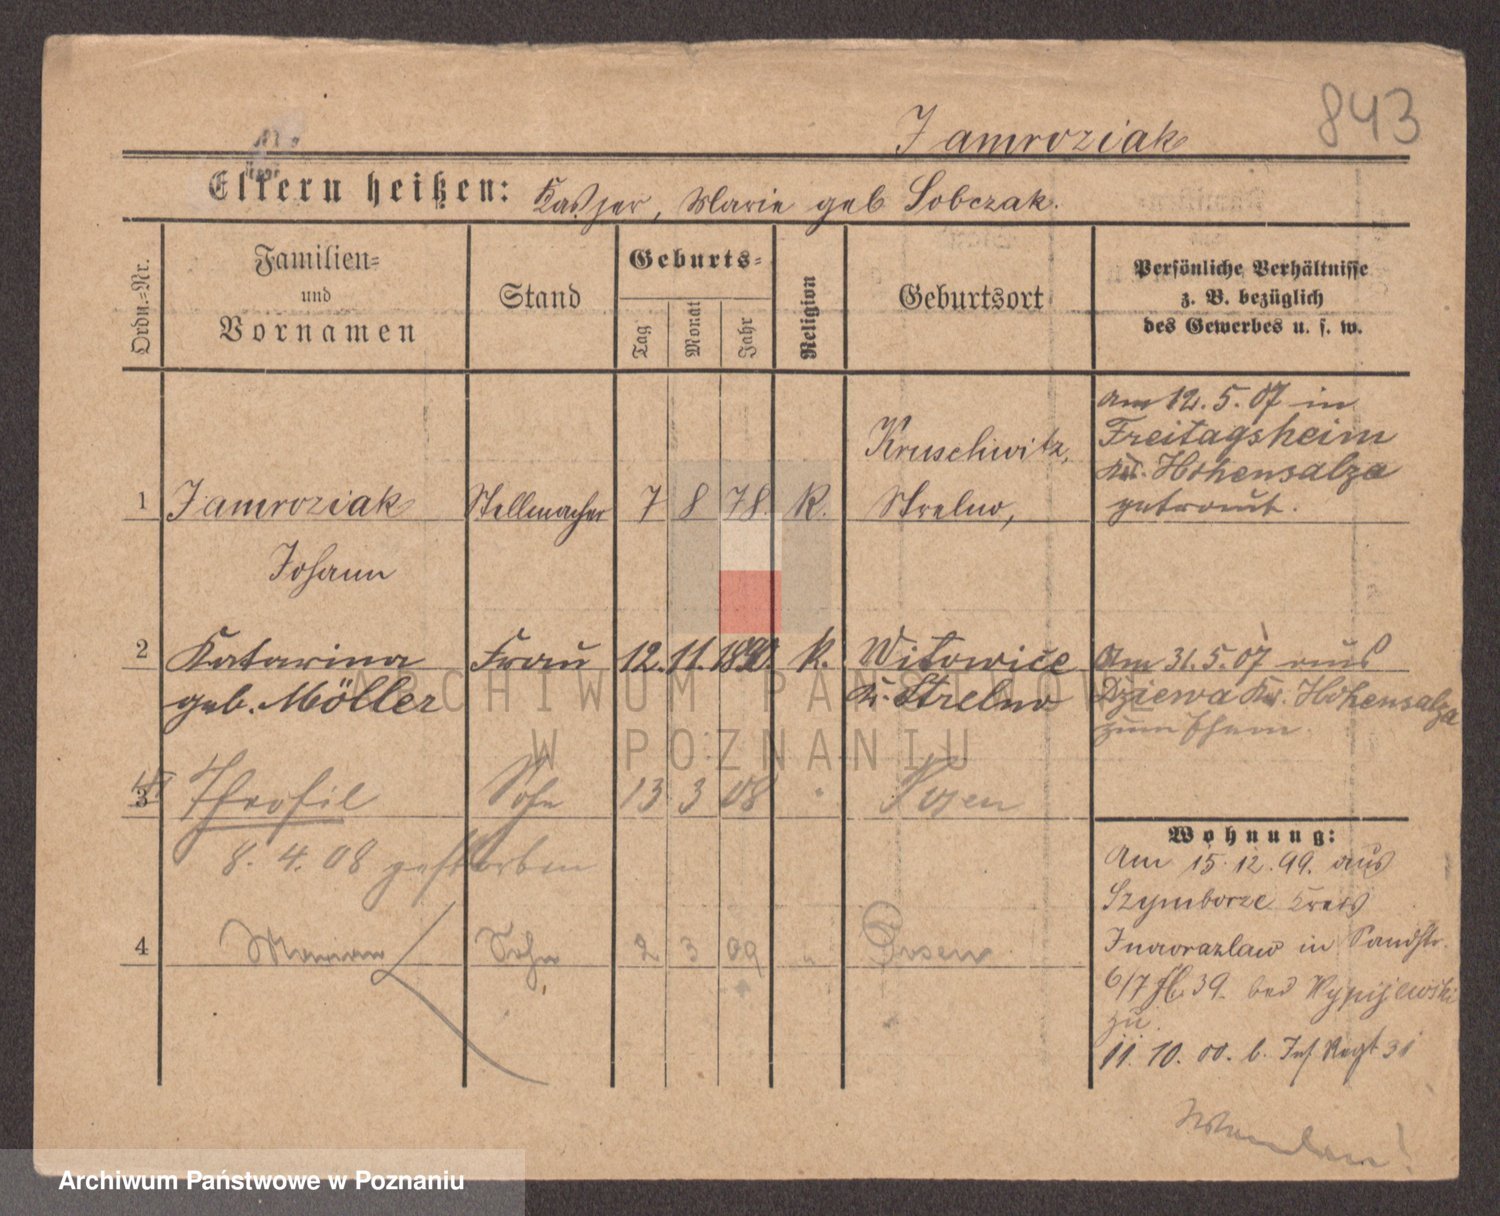 843
Jamroziak
Eltern heißen: Kasper, Marie geb Sobczak.
Ordn.=Nr.
Familien=
und
Vornamen
Stand
Geburts=
Tag
Monat
Jahr
Religion
Geburtsort
Persönliche Verhältnisse
z. B. bezüglich
des Gewerbes u. s. w.
1 Jamroziak Stellmacher 7 8 78. K. Kruschwitz,
Strelno,
Johann
am 12. 5. 07 in
Freitagsheim
Kr. Hohensalza
getraut.
2 Katarina Frau 12. 11. 1880 k. Witowice
geb. Möller Kr. Strelno
Am 31. 5. 07 aus
Dziewa Kr. Hohensalza
zum Ehem.
3 Theofil Sohn 13 3 08 " Posen
8. 4. 08 gestorben
4 Marian Sohn 2 3 09 " Posen
Wohnung:
Am 15. 12. 99. aus
Szymborze Kreis
Inowrazlaw in Sandstr.
6/7 39. bei Wypijewski
zu.
11. 10. 00. b. Inf Regt 31
ARCHIWUM PAŃSTWOWE
W POZNANIU
Archiwum Państwowe w Poznaniu